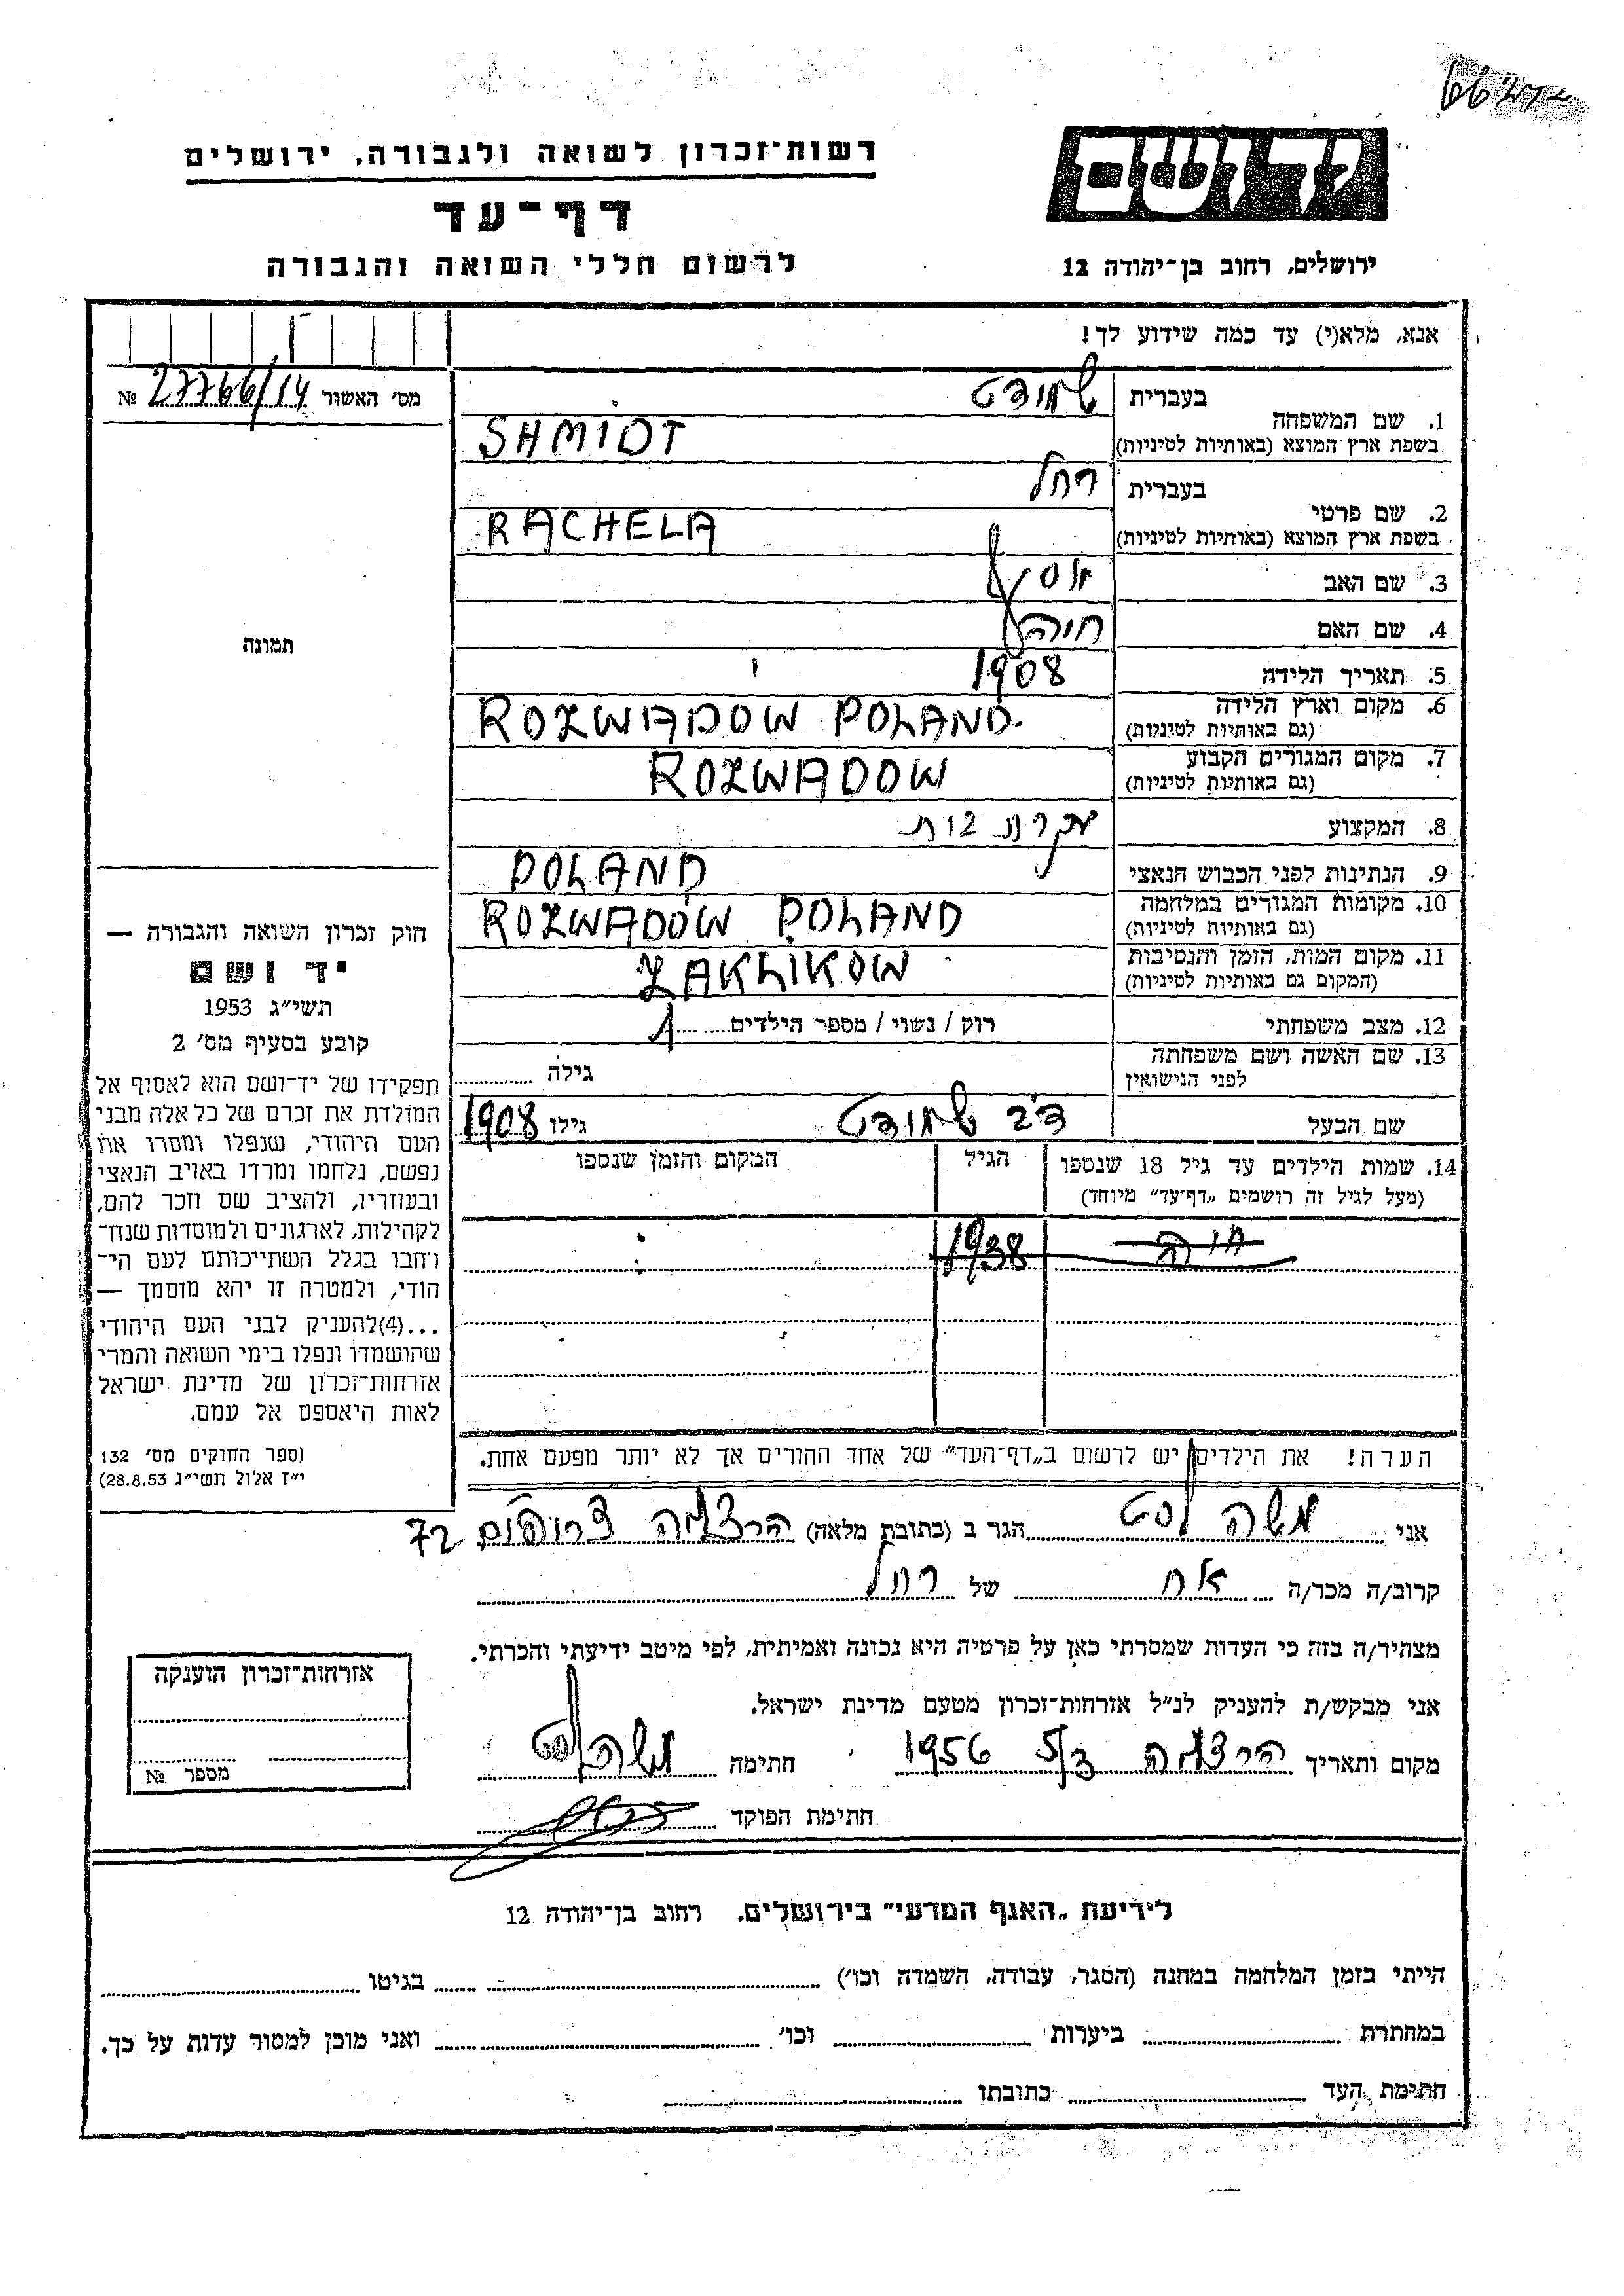 רשות־זכרון לשואה ולגבורה, ירושלים
דף־עד
לרשום חללי השואה והגבורה
יד ושם
ירושלים, רחוב בן־יהודה 12
אנא, מלא(י) עד כמה שידוע לך!
מס׳ האשור 27766/14 №
1. שם המשפחה
בעברית שמידט
בשפת ארץ המוצא (באותיות לטיניות) SHMIDT
2. שם פרטי
בעברית רחל
בשפת ארץ המוצא (באותיות לטיניות) RACHELA
3. שם האב
4. שם האם חיה
5. תאריך הלידה 1908
6. מקום וארץ הלידה ROZWADOW POLAND
(גם באותיות לטיניות)
7. מקום המגורים הקבוע ROZWADOW
(גם באותיות לטיניות)
8. המקצוע עקרת בית
9. הנתינות לפני הכבוש הנאצי POLAND
10. מקומות המגורים במלחמה ROZWADOW POLAND
(גם באותיות לטיניות)
11. מקום המות, הזמן והנסיבות ZAKLIKOW
(המקום גם באותיות לטיניות)
12. מצב משפחתי רוק / נשוי / מספר הילדים 1
13. שם האשה ושם משפחתה
לפני הנישואין גילה
שם הבעל שמידט גילו 1908
14. שמות הילדים עד גיל 18 שנספו הגיל המקום והזמן שנספו
(מעל לגיל זה רושמים „דף־עד” מיוחד)
חיה 1938
הערה! את הילדים יש לרשום ב„דף־העד” של אחד ההורים אך לא יותר מפעם אחת.
תמונה
חוק זכרון השואה והגבורה —
יד ושם
תשי״ג 1953
קובע בסעיף מס׳ 2
תפקידו של יד־ושם הוא לאסוף אל
המולדת את זכרם של כל אלה מבני
העם היהודי, שנפלו ומסרו את
נפשם, נלחמו ומרדו באויב הנאצי
ובעוזריו, ולהציב שם וזכר להם,
לקהילות, לארגונים ולמוסדות שנח־
רבו בגלל השתייכותם לעם הי־
הודי, ולמטרה זו יהא מוסמך —
...(4)להעניק לבני העם היהודי
שהושמדו ונפלו בימי השואה והמרי
אזרחות־זכרון של מדינת ישראל
לאות היאספם אל עמם.
(ספר החוקים מס׳ 132
י״ז אלול תשי״ג 28.8.53)
אני משה הגר ב (כתובת מלאה) הרצליה 72
קרוב/ה מכר/ה אח של רחל
מצהיר/ה בזה כי העדות שמסרתי כאן על פרטיה היא נכונה ואמיתית, לפי מיטב ידיעתי והכרתי.
אני מבקש/ת להעניק לנ״ל אזרחות־זכרון מטעם מדינת ישראל.
מקום ותאריך הרצליה 1956 חתימה משה
חתימת הפוקד
אזרחות־זכרון הוענקה
מספר №
לידיעת „האגף המדעי” בירושלים, רחוב בן־יהודה 12
הייתי בזמן המלחמה במחנה (הסגר, עבודה, השמדה וכו׳) בגיטו
במחתרת ביערות וכו׳ ואני מוכן למסור עדות על כך.
חתימת העד כתובתו